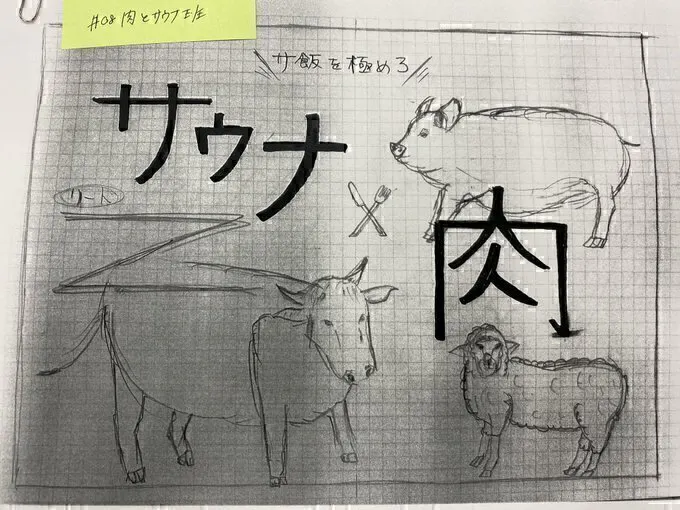 #08 肉とサウナ班
サ飯を極めろ
サウナ
リード
肉